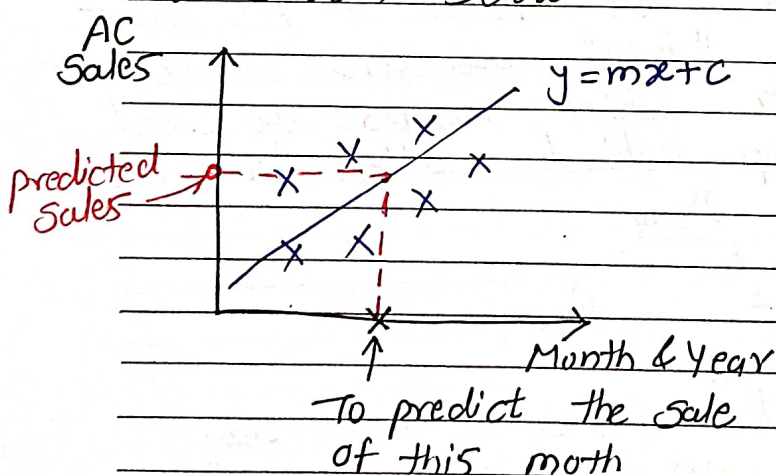 AC
Sales
y=mx+c
predicted
sales
Month & Year
To predict the sale
of this moth